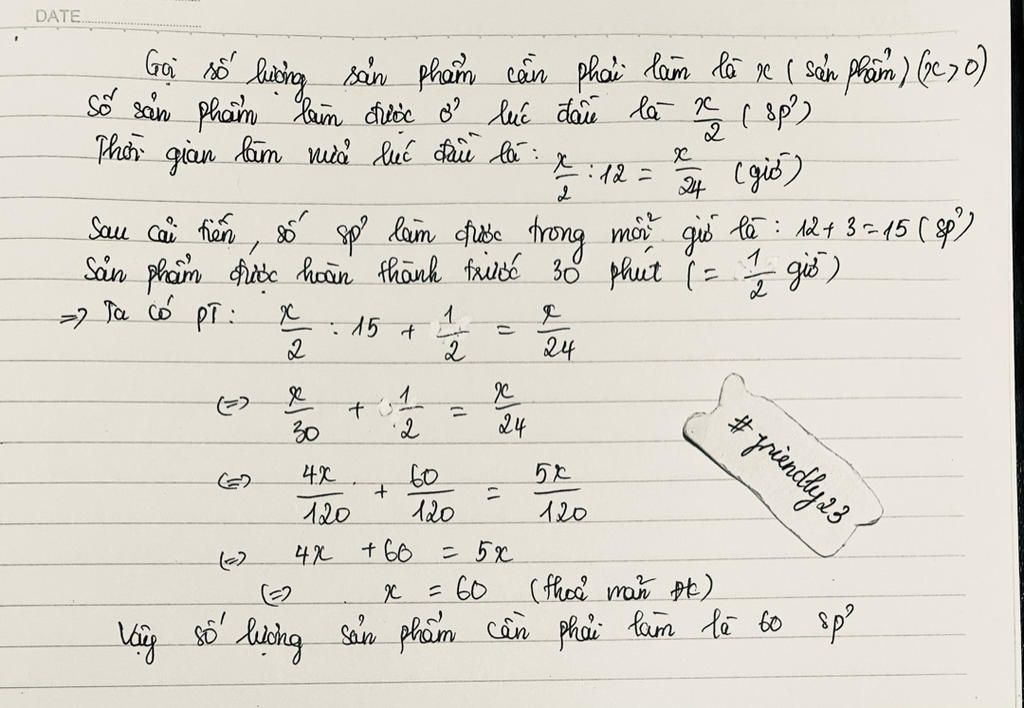 DATE
Gọi số lượng sản phẩm cần phải làm là x (sản phẩm) (x > 0)
Số sản phẩm làm được ở lúc đầu là x/2 (sp')
Thời gian làm nửa lúc đầu là: x/2 : 12 = x/24 (giờ)
Sau cải tiến, số sp' làm được trong mỗi giờ là: 12 + 3 = 15 (sp')
Sản phẩm được hoàn thành trước 30 phút (= 1/2 giờ)
=> Ta có PT: x/2 : 15 + 1/2 = x/24
(=) x/30 + 1/2 = x/24
(=) 4x/120 + 60/120 = 5x/120
(=) 4x + 60 = 5x
(=) x = 60 (thoả mãn đk)
Vậy số lượng sản phẩm cần phải làm là 60 sp'
# friendly23